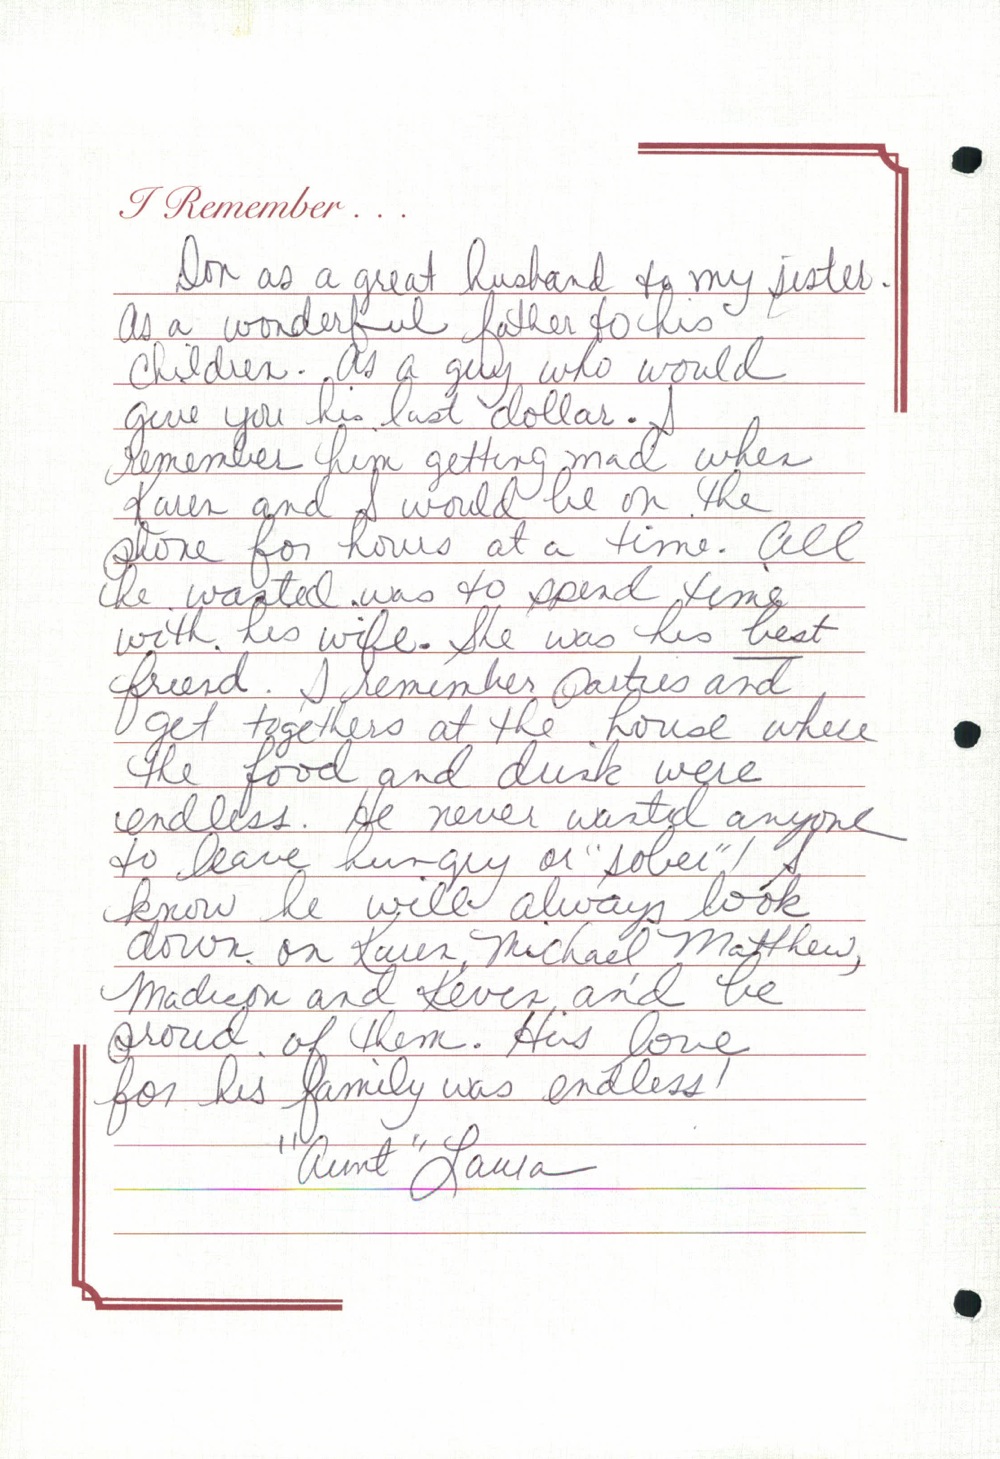 I Remember . . .
Don as a great husband to my sister.
As a wonderful father to his
children. As a guy who would
give you his last dollar. I
remember him getting mad when
Karen and I would be on the
phone for hours at a time. All
he wanted was to spend time
with his wife. She was his best
friend. I remember parties and
get togethers at the house where
the food and drink were
endless. He never wanted anyone
to leave hungry or "sober"! I
know he will always look
down on Karen, Michael Matthew,
Madison and Keven and be
proud of them. His love
for his family was endless!
"Aunt" Laura